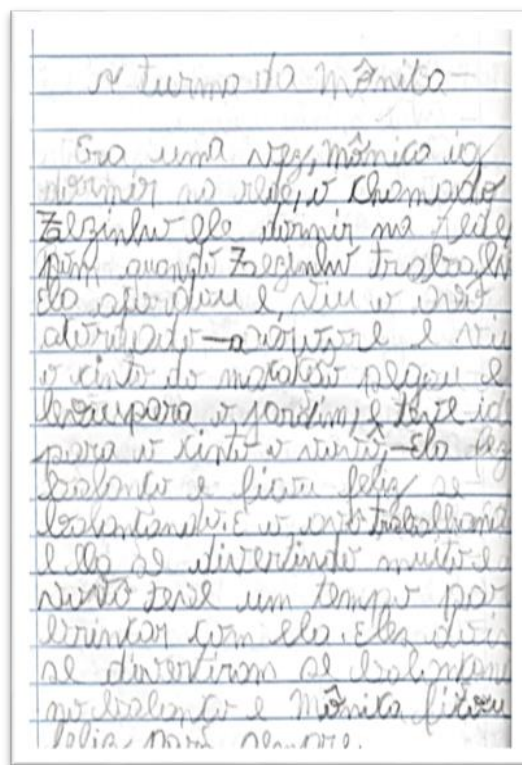 A turma da Mônica
Era uma vez, Mônica ia
dormir na rede, o chamado
Zezinho ela dormir na rede
quando Zezinho trabalh
Ela acordou e viu o avô
e viu
o cinto do macacão pegou e
levou para o jardim, e teve id
para o cinto o vovô, — Ela fez
balanço e ficou feliz se
balantando. E o avô trabalhand
e ela se divertindo muito e
vovô teve um tempo par
brintar com ela. Eles dois
se divertiram se balantan
no balanço e Mônica ficou
feliz para sempre.